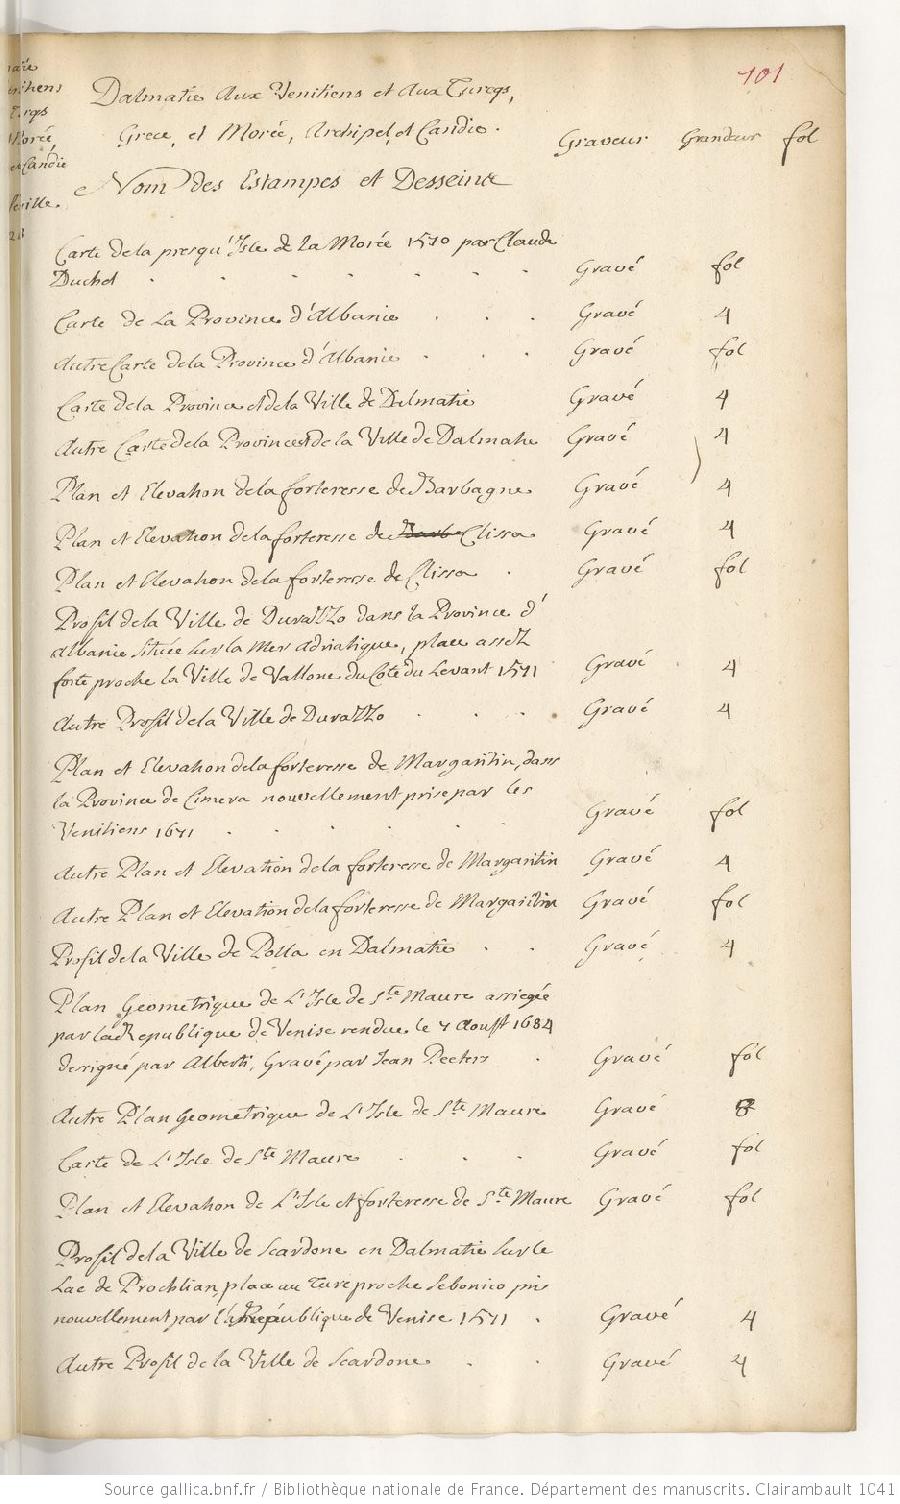 101
Dalmatie Aux Venitiens et Aux Turcqs,
Grece, et Morée, Archipel, et Candie.
Graveur Grandeur fol
Nom des Estampes et Desseins
Carte de la presqu'Isle de La Morée 1570 par Claude
Duchet . . . . . . Gravé fol
Carte de La Province d'Albanie . . . Gravé 4
Autre Carte de la Province d'Albanie . . . Gravé fol
Carte de la Province et de la Ville de Dalmatie Gravé 4
Autre Carte de la Province et de la Ville de Dalmatie Gravé 4
Plan et Elevation de la forteresse de Barbagne Gravé 4
Plan et Elevation de la forteresse de Barb Clissa Gravé 4
Plan et Elevation de la forteresse de Clissa . Gravé fol
Profil de la Ville de Durazzo dans la Province d'
Albanie Située sur la Mer Adriatique, place assez
forte proche la Ville de Vallone du Coté du Levant 1571 Gravé 4
Autre Profil de la Ville de Durazzo . . . Gravé 4
Plan et Elevation de la forteresse de Margaritin, dans
la Province de Cimera nouvellement prise par les
Venitiens 1671 . . . . . Gravé fol
Autre Plan et Elevation de la forteresse de Margaritin Gravé 4
Autre Plan et Elevation de la forteresse de Margaritin Gravé fol
Profil de la Ville de Polla en Dalmatie . . Gravé 4
Plan Geometrique de L'Isle de Ste Maure
par la Republique de Venise rendue le 7 Aoust 1684
designé par Alberti, Gravé par Jean Peeters . Gravé fol
Autre Plan Geometrique de L'Isle de Ste Maure Gravé 8
Carte de L'Isle de Ste Maure . . . Gravé fol
Plan et Elevation de L'Isle et forteresse de Ste Maure Gravé fol
Profil de la Ville de Scardone en Dalmatie sur le
Lac de Prochlian, place au Turc proche Sebenico pris
nouvellement par la Republique de Venise 1571 . Gravé 4
Autre Profil de la Ville de Scardone . . Gravé 4
Source gallica.bnf.fr / Bibliothèque nationale de France. Département des manuscrits. Clairambault 1041